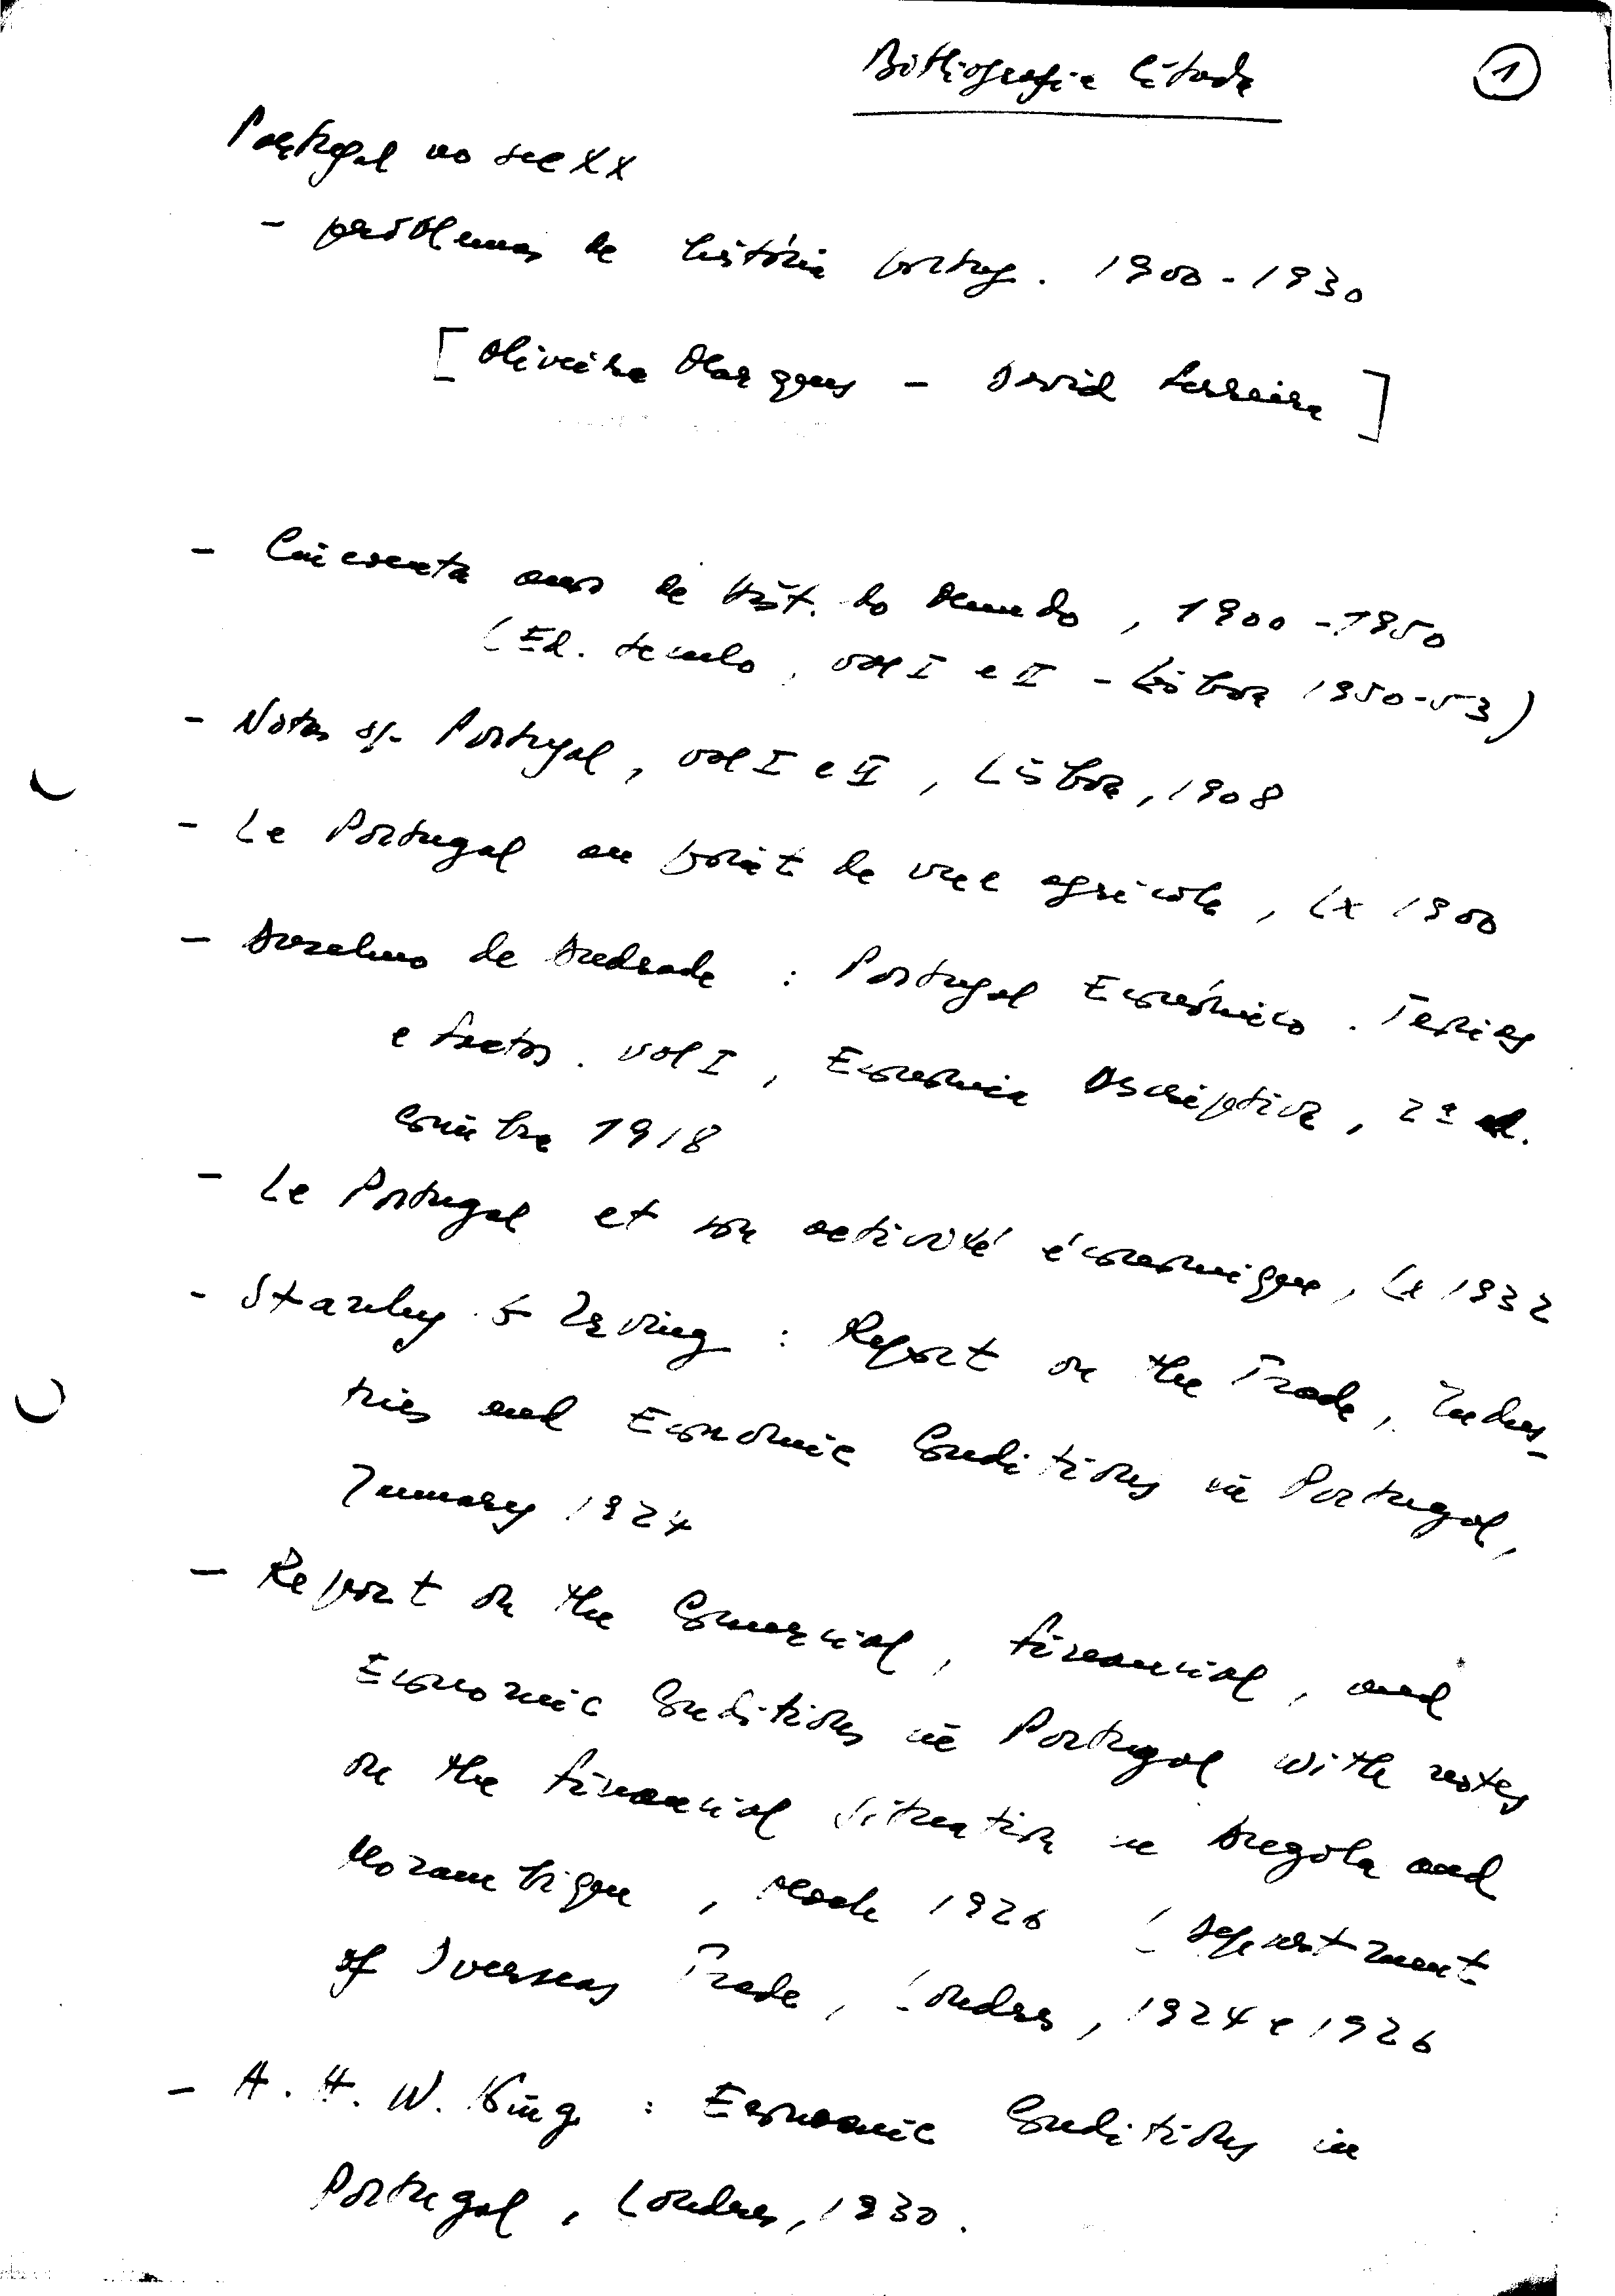 Bibliografia Citada
1
Portugal no sec XX
- problemas de história portug. 1900-1930
[Oliveira Marques - David Ferreira]
- Cincoenta anos de Hist. do Mundo, 1900-1950
(Ed. Seculo, vol I e II - Lisboa 1950-53)
- Notas s/- Portugal, vol I e II, Lisboa, 1908
- Le Portugal au point de vue agricole, Lx 1900
- Anselmo de Andrade : Portugal Económico. Teorias
e factos. vol I, Economia Descriptiva, 2ª ed.
Coimbra 1918
- Le Portugal et son activité économique, Lx 1932
- Stanley G Irving : Report on the Trade, Indus-
tries and Economic Conditions in Portugal,
January 1924
- Report on the Commercial, Financial, and
Economic Conditions in Portugal with notes
on the financial situation in Angola and
Mozambique, 1926 (Department
of Overseas Trade, Londres, 1924 e 1926
- A. H. W. King : Economic Conditions in
Portugal, Londres, 1930.